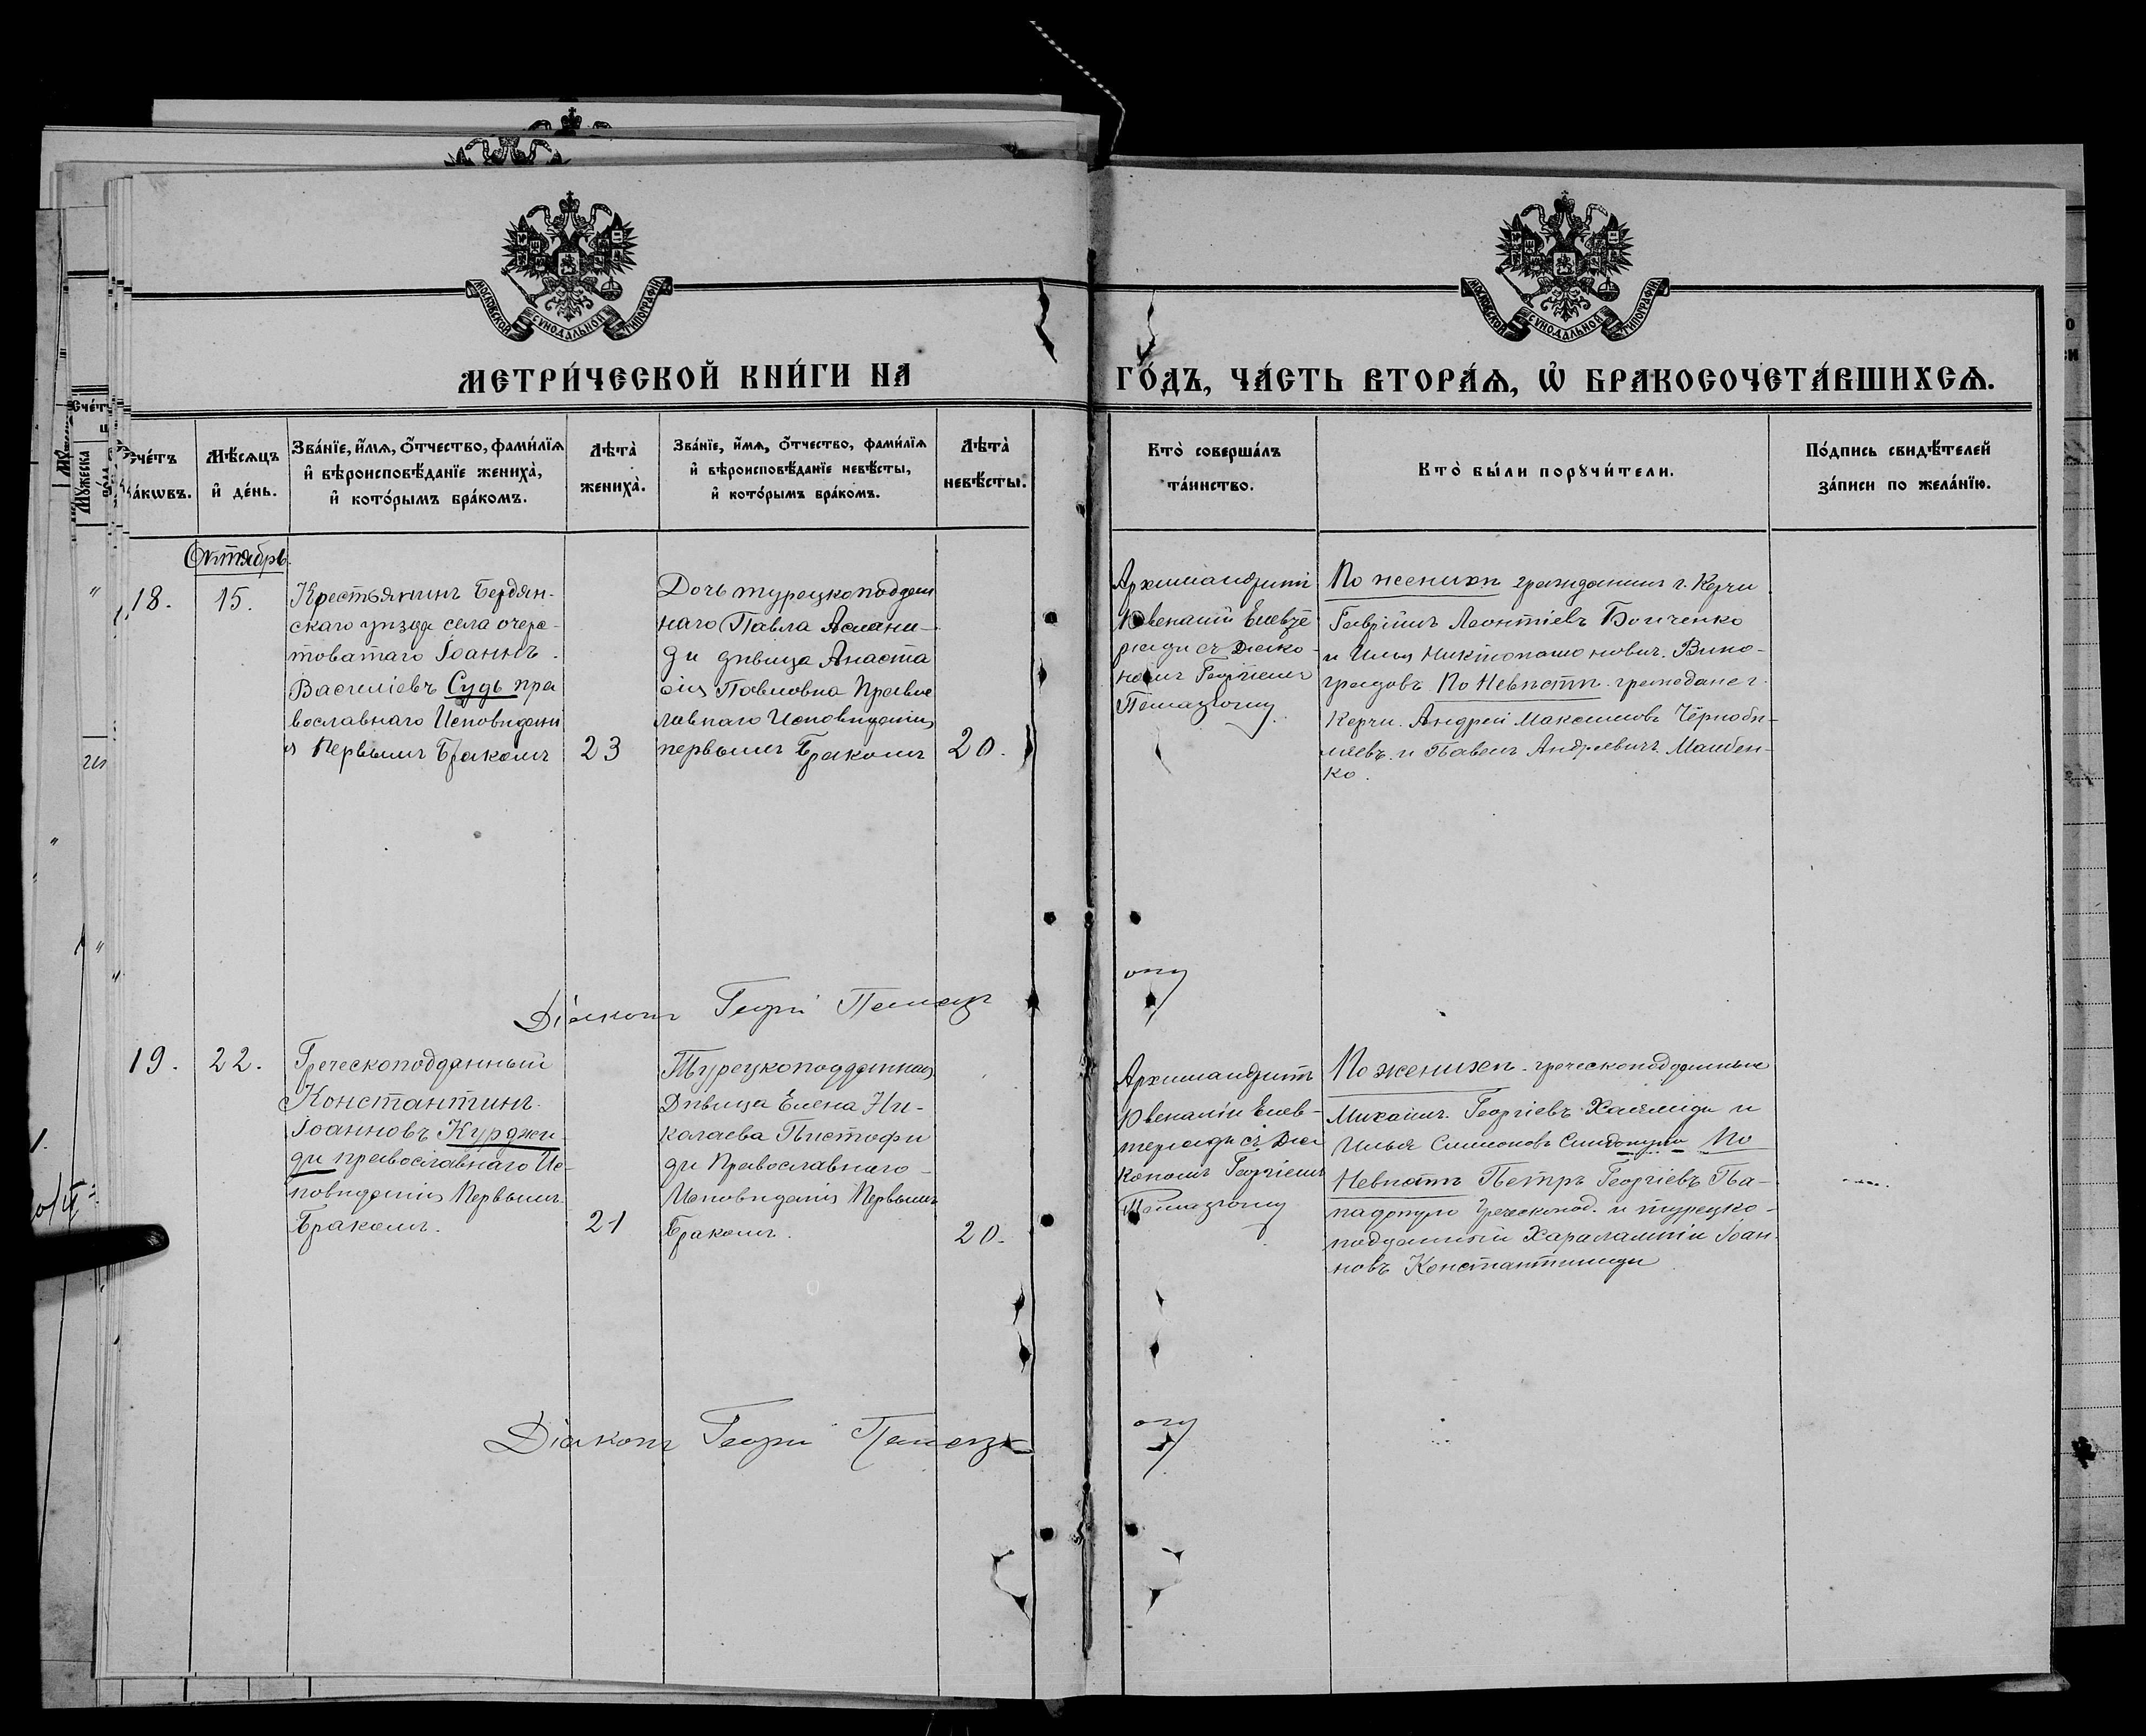 МОСКОВСКОЙ СУНОДАЛЬНОЙ ТИПОГРАФІИ
МОСКОВСКОЙ СУНОДАЛЬНОЙ ТИПОГРАФІИ
МЕТРИ́ЧЕСКОЙ КНИ́ГИ НА
ГО́ДЪ, ЧА́СТЬ ВТОРА́Ѧ, Ѡ҆ БРАКОСОЧЕТА́ВШИХСѦ.
Счéтъ
ба́кѡвъ.
Мѣ́сяцъ
и҆ де́нь.
Зва́нїе, и҆́мѧ, ѻ҆́тчество, фами́лїѧ
и҆ вѣроисповѣ́данїе жениха̀,
и҆ кото́рымъ бра́комъ.
Лѣта̀
жениха̀.
Зва́нїе, и҆́мѧ, ѻ҆́тчество, фами́лїѧ
и҆ вѣроисповѣ́данїе невѣ́сты,
и҆ кото́рымъ бра́комъ.
Лѣта̀
невѣ́сты.
Кто̀ соверша́лъ
та́инство.
Кто̀ бы́ли порꙋчи́тели.
По́дпись свидѣ́телей
за́писи по жела́нїю.
Октябрь.
18.
15.
Крестьянинъ Бердян-
скаго уѣзда села очере-
товатаго Іоаннъ
Василіевъ Судь пра
вославнаго Исповѣдані
я Первымъ Бракомъ
23
Дочь турецкоподдан
наго Павла Аслани-
ди дѣвица Анаста
сія Павловна Право
лавнаго Исповѣданія
первымъ Бракомъ
20.
Архимандритъ
Ювеналій Елевѳе
ріади съ Діако
номъ Георгіемъ
По женихѣ гражданинъ г. Керчи
Гавріилъ Леонтіевъ
и Илья Вино-
градовъ По Невѣстѣ граждане г.
Керчи. Андрей Максимовъ
и Павелъ Андреевичъ
ко.
Діаконъ Георгій
19.
22.
Греческоподданный
Константинъ
Іоанновъ Курджи
ди православнаго Ис-
повѣданія Первымъ
Бракомъ.
21
Турецкоподданная
Дѣвица Елена Ни-
колаева Пистофи
ди Православнаго
Исповѣданія Первымъ
Бракомъ.
20.
Архимандритъ
Ювеналій Елев-
теріади съ Діа
кономъ Георгіемъ
По женихѣ греческоподданные
Михаилъ Георгіевъ и
Илья Симеоновъ По
Невѣстѣ Петръ Георгіевъ Па-
падопуло Греческопод. и турецко-
подданный Харалампій Іоан
новъ Константиниди
Діаконъ Георгій